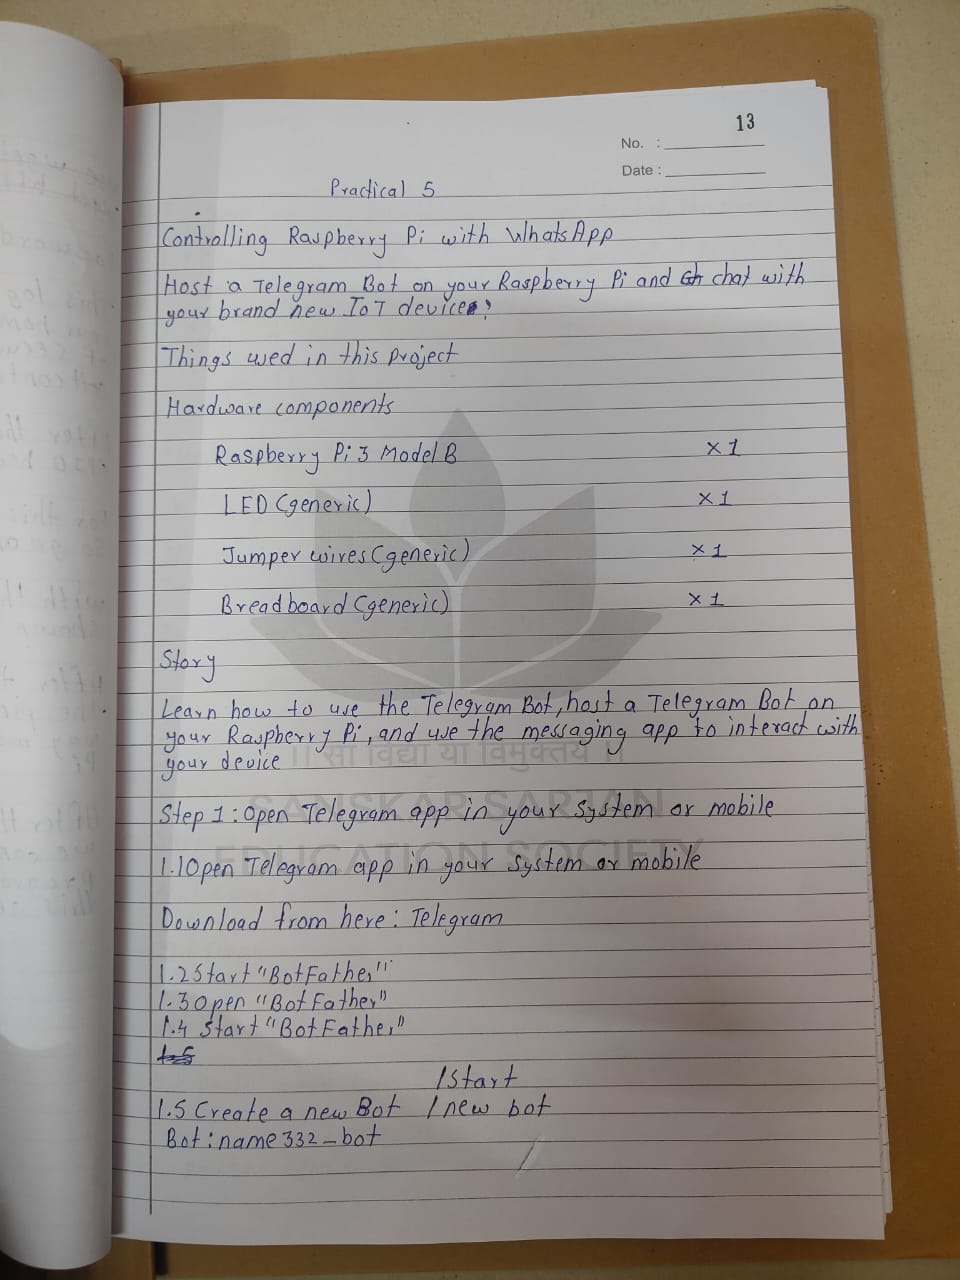 13
No. :
Date :
Practical 5
Controlling Raspberry Pi with WhatsApp
Host a Telegram Bot on your Raspberry Pi and chat with
your brand new IoT device!
Things used in this project
Hardware components
Raspberry Pi 3 Model B x 1
LED (generic) x 1
Jumper wires (generic) x 1
Breadboard (generic) x 1
Story
Learn how to use the Telegram Bot, host a Telegram Bot on
your Raspberry Pi, and use the messaging app to interact with
your device
।। सा विद्या या विमुक्तये ।।
Step 1 : Open Telegram app in your system or mobile
SANSKAR SARJAN
EDUCATION SOCIETY
1.1 Open Telegram app in your system or mobile
Download from here : Telegram
1.2 Start "BotFather"
1.3 Open "BotFather"
1.4 Start "BotFather"
/Start
1.5 Create a new Bot /new bot
Bot : name 332_bot